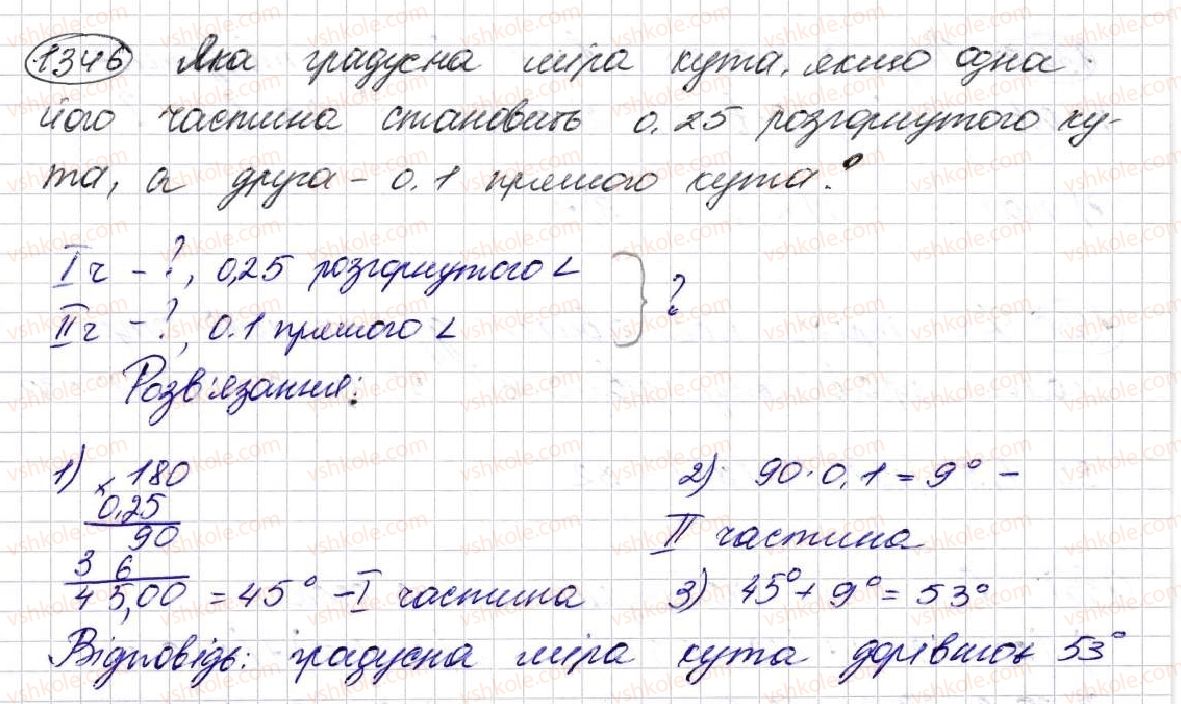 1346 Яка градусна міра кута, якщо одна
його частина становить 0,25 розгорнутого ку-
та, а друга - 0.1 прямого кута?
I ч - ?, 0,25 розгорнутого ∠
II ч - ?, 0.1 прямого ∠ } ?
Розв'язання:
1) × 180
0,25
90
3 6
45,00 = 45° - I частина
2) 90 · 0,1 = 9° -
II частина
3) 45° + 9° = 53°
Відповідь: градусна міра кута дорівнює 53°
vshkole.com